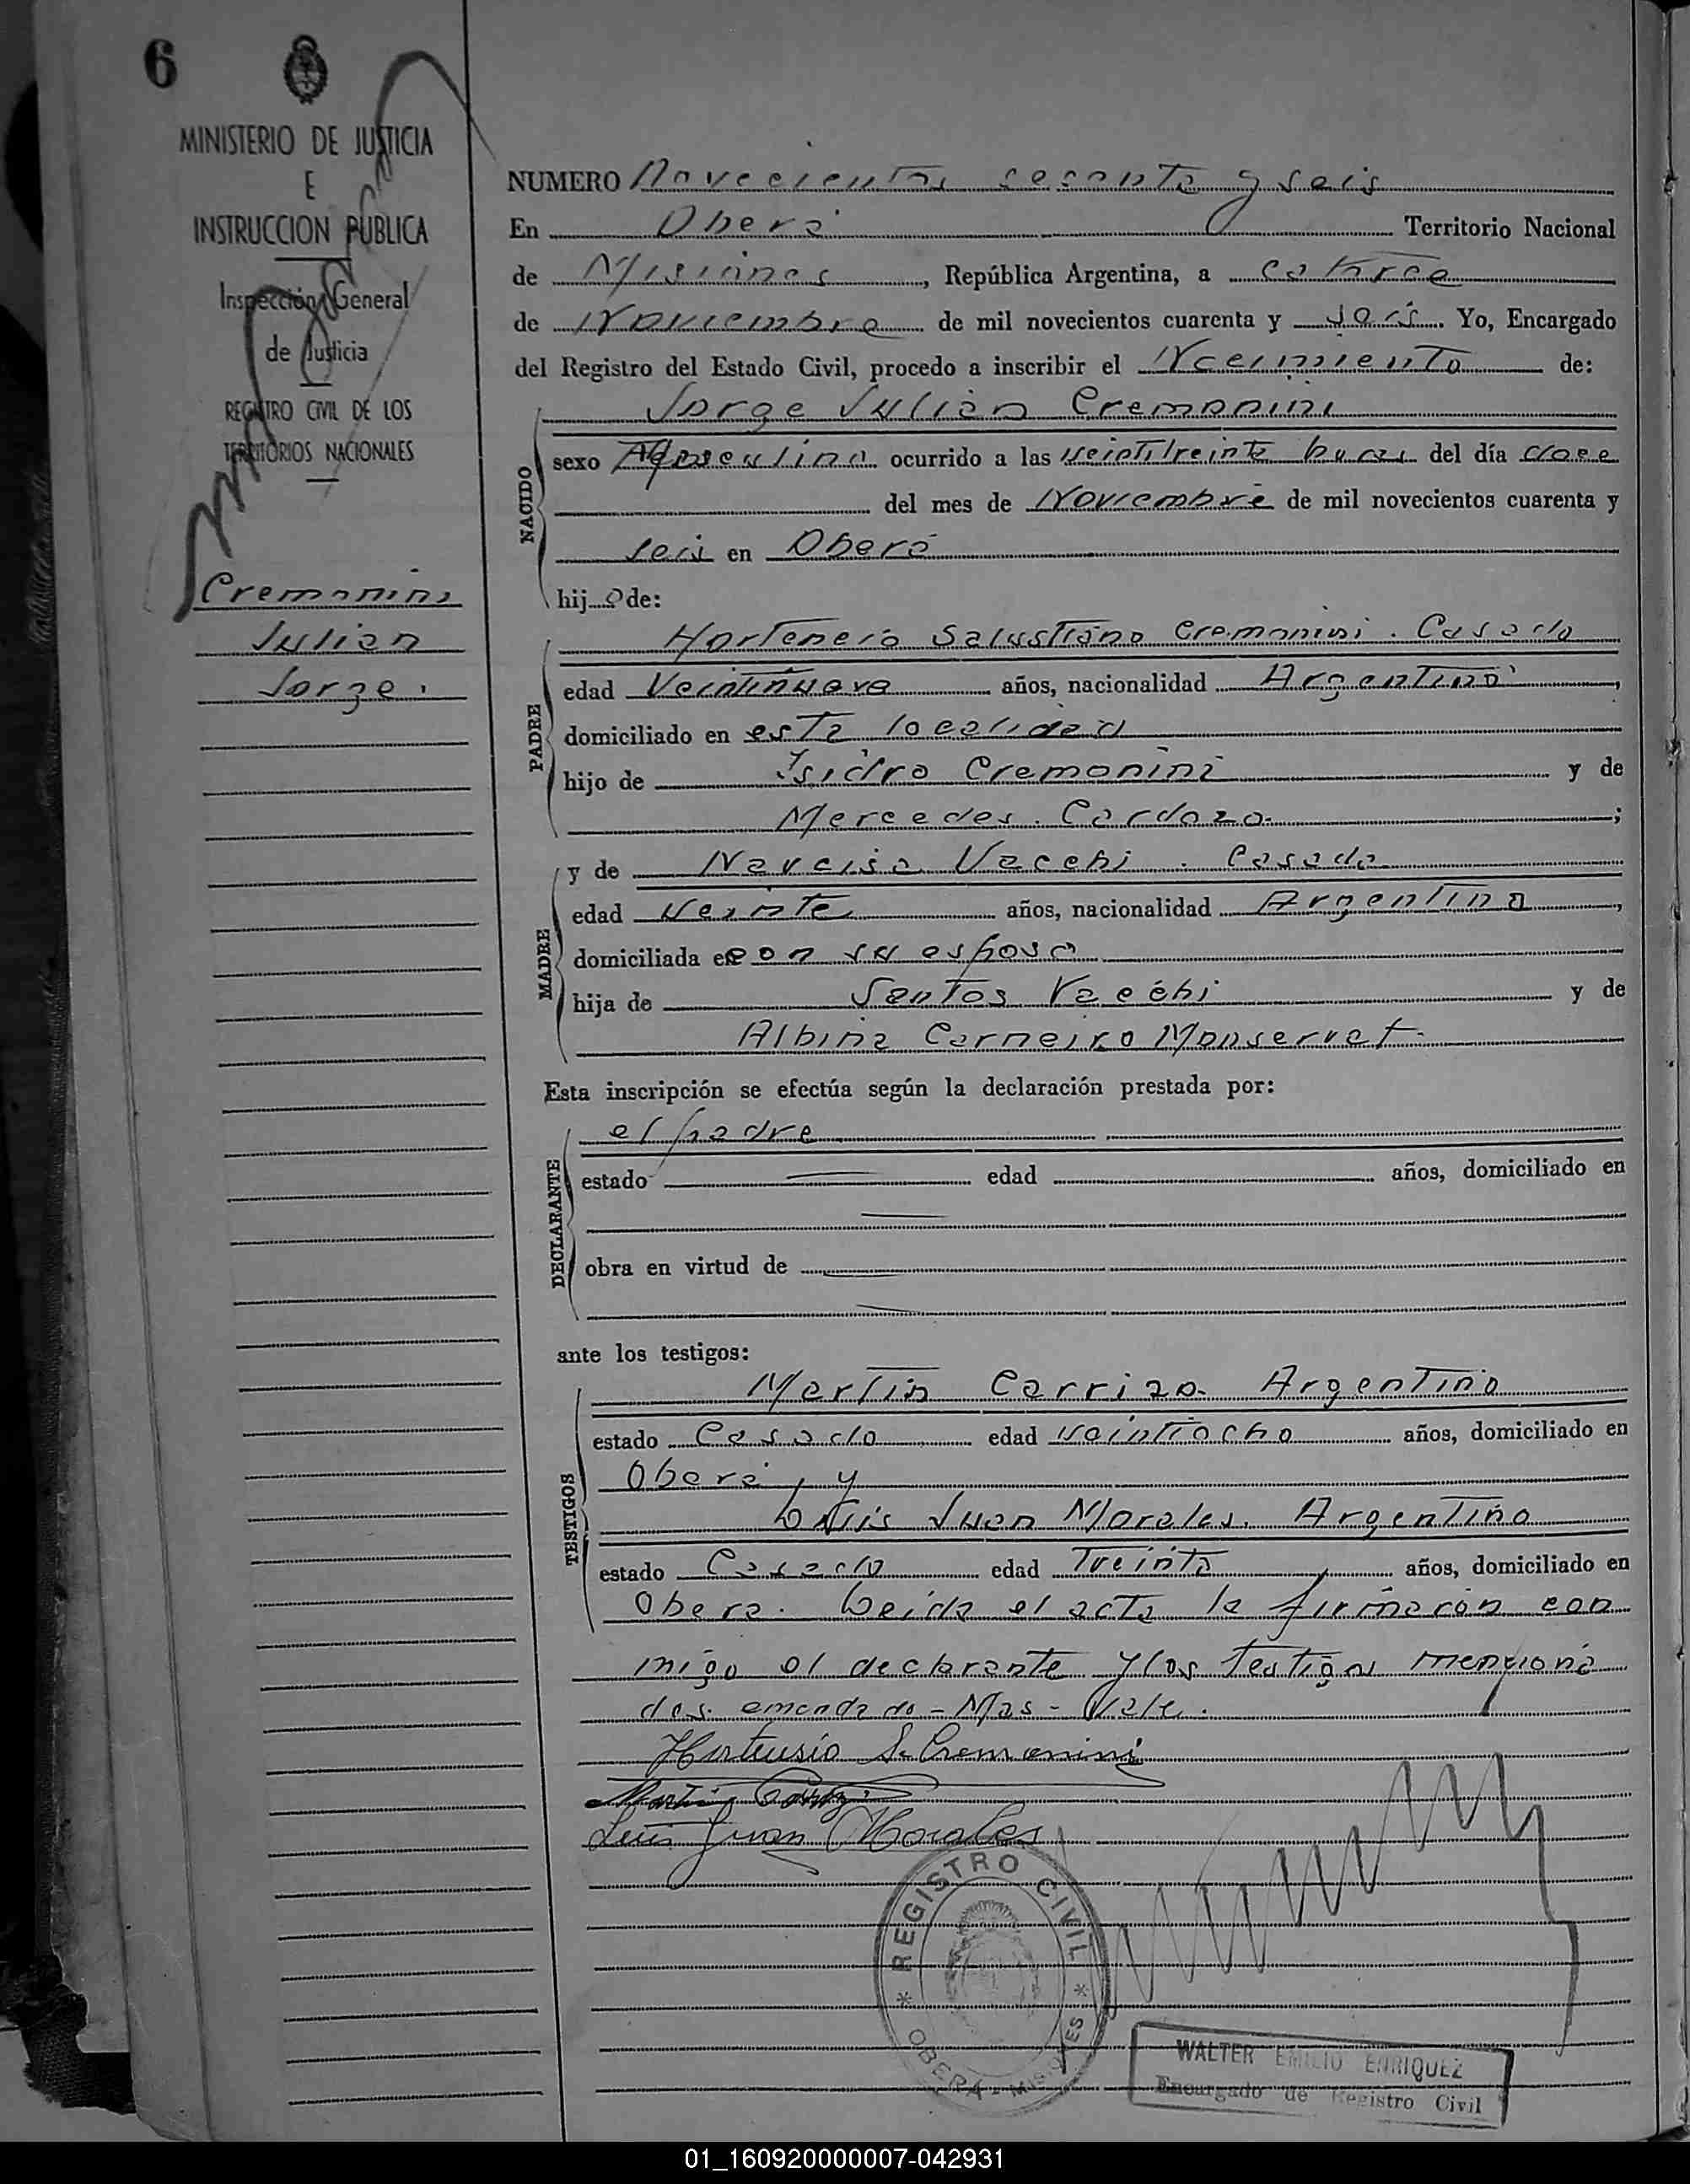 6
MINISTERIO DE JUSTICIA
E
INSTRUCCION PUBLICA
Inspección General
de Justicia
REGISTRO CIVIL DE LOS
TERRITORIOS NACIONALES
Cremonini
Julian
Jorge.
NUMERO Novecientos sesenta y seis
En Oberá Territorio Nacional
de Misiones, República Argentina, a catorce
de Noviembre de mil novecientos cuarenta y seis. Yo, Encargado
del Registro del Estado Civil, procedo a inscribir el Nacimiento de:
Jorge Julián Cremonini
NACIDO
sexo Masculino ocurrido a las veintitreinta horas del día doce
del mes de Noviembre de mil novecientos cuarenta y
seis en Oberá
hijo de:
PADRE
Hortencio Salustiano Cremonini. Casado
edad Veintinueve años, nacionalidad Argentino,
domiciliado en esta localidad
hijo de Isidro Cremonini y de
Mercedes Cardozo.;
MADRE
y de Narcisa Vacchi. Casada
edad Veinte años, nacionalidad Argentina,
domiciliada con su esposo
hija de Santos Vacchi y de
Albina Carneiro Monserrat.
Esta inscripción se efectúa según la declaración prestada por:
DECLARANTE
el padre
estado edad años, domiciliado en
obra en virtud de
ante los testigos:
TESTIGOS
Martín Carrizo. Argentino
estado Casado edad veintiocho años, domiciliado en
Oberá, y
Luis Juan Morales. Argentino
estado Casado edad Treinta años, domiciliado en
Oberá. Leída el acta la firmaron con
migo el declarante y los testigos menciona
dos. emendado - Mas - Vale.
Hortensio S. Cremonini
Luis Juan Morales
REGISTRO CIVIL
OBERA - MISIONES
WALTER EMILIO ENRIQUEZ
Encargado de Registro Civil
01_160920000007-042931